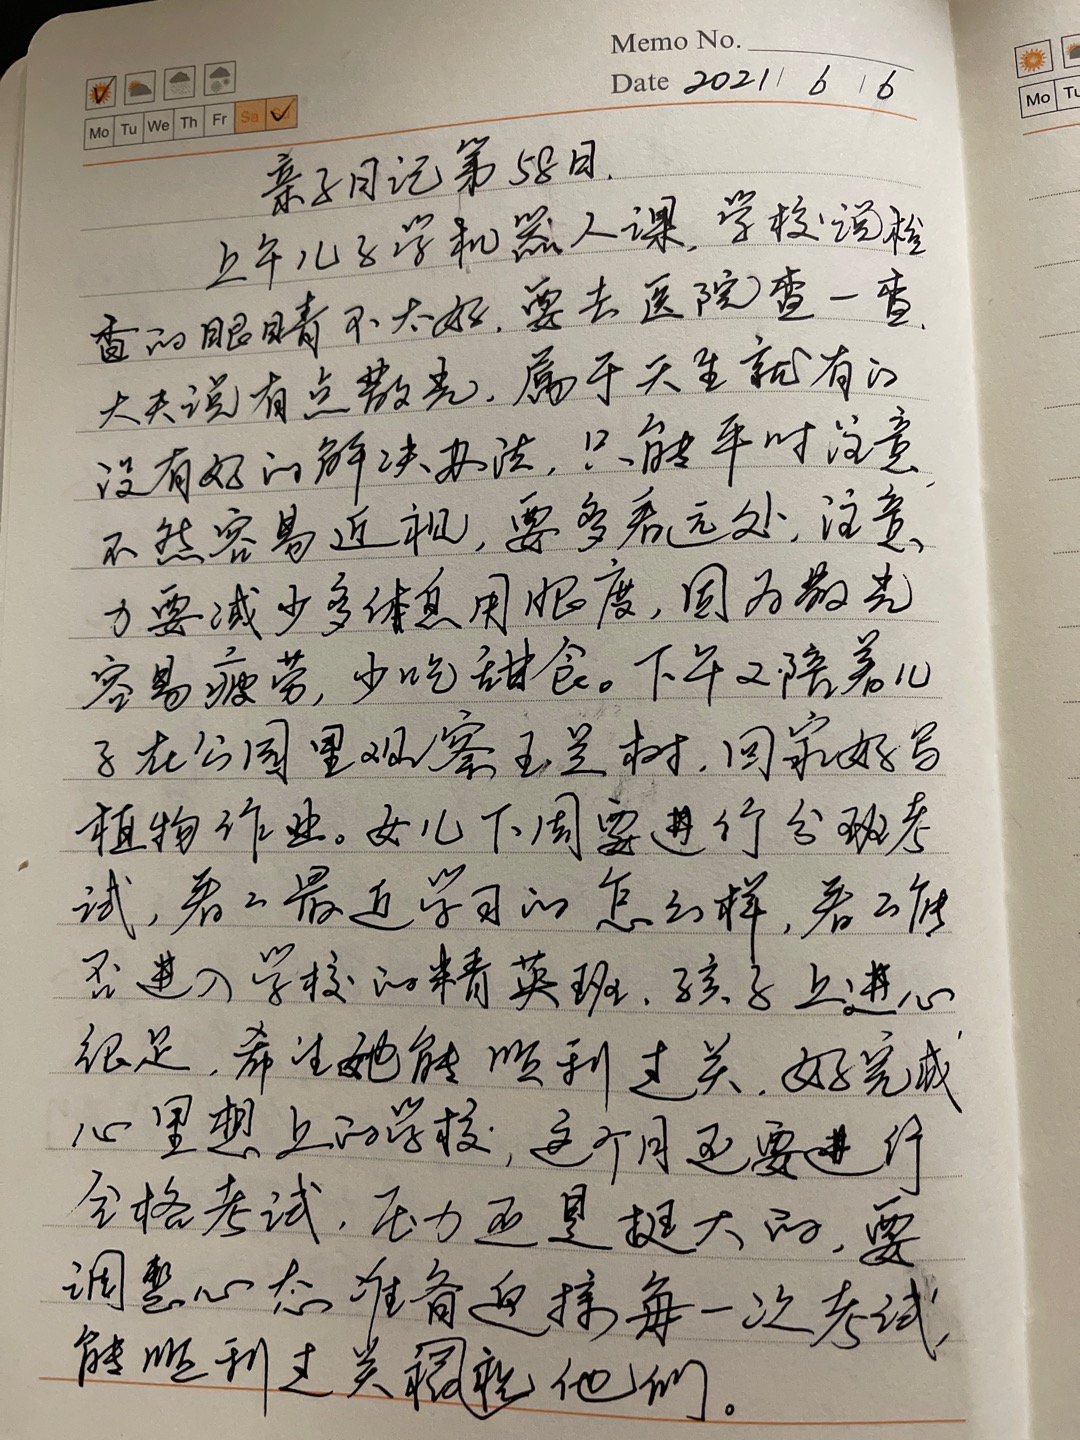 Memo No.
Date 2021 / 6 / 6
Mo Tu We Th Fr Sa Su
Mo Tu
亲子日记第58日.
上午儿子学机器人课, 学校说检
查的眼睛不太好, 要去医院查一查,
大夫说有点散光, 属于天生就有的
没有好的解决办法, 只能平时注意,
不然容易近视, 要多看远处, 注意
力要减少多休息用眼度, 因为散光
容易疲劳, 少吃甜食。下午又陪着儿
子在公园里观察玉兰树, 回家好写
植物作业。女儿下周要进行分班考
试, 看看最近学习的怎么样, 看看能
否进入学校的精英班, 孩子上进心
很足, 希望她能顺利过关, 好完成
心里想上的学校, 这个月还要进行
合格考试, 压力还是挺大的, 要
调整心态准备迎接每一次考试,
能顺利过关祝他们。